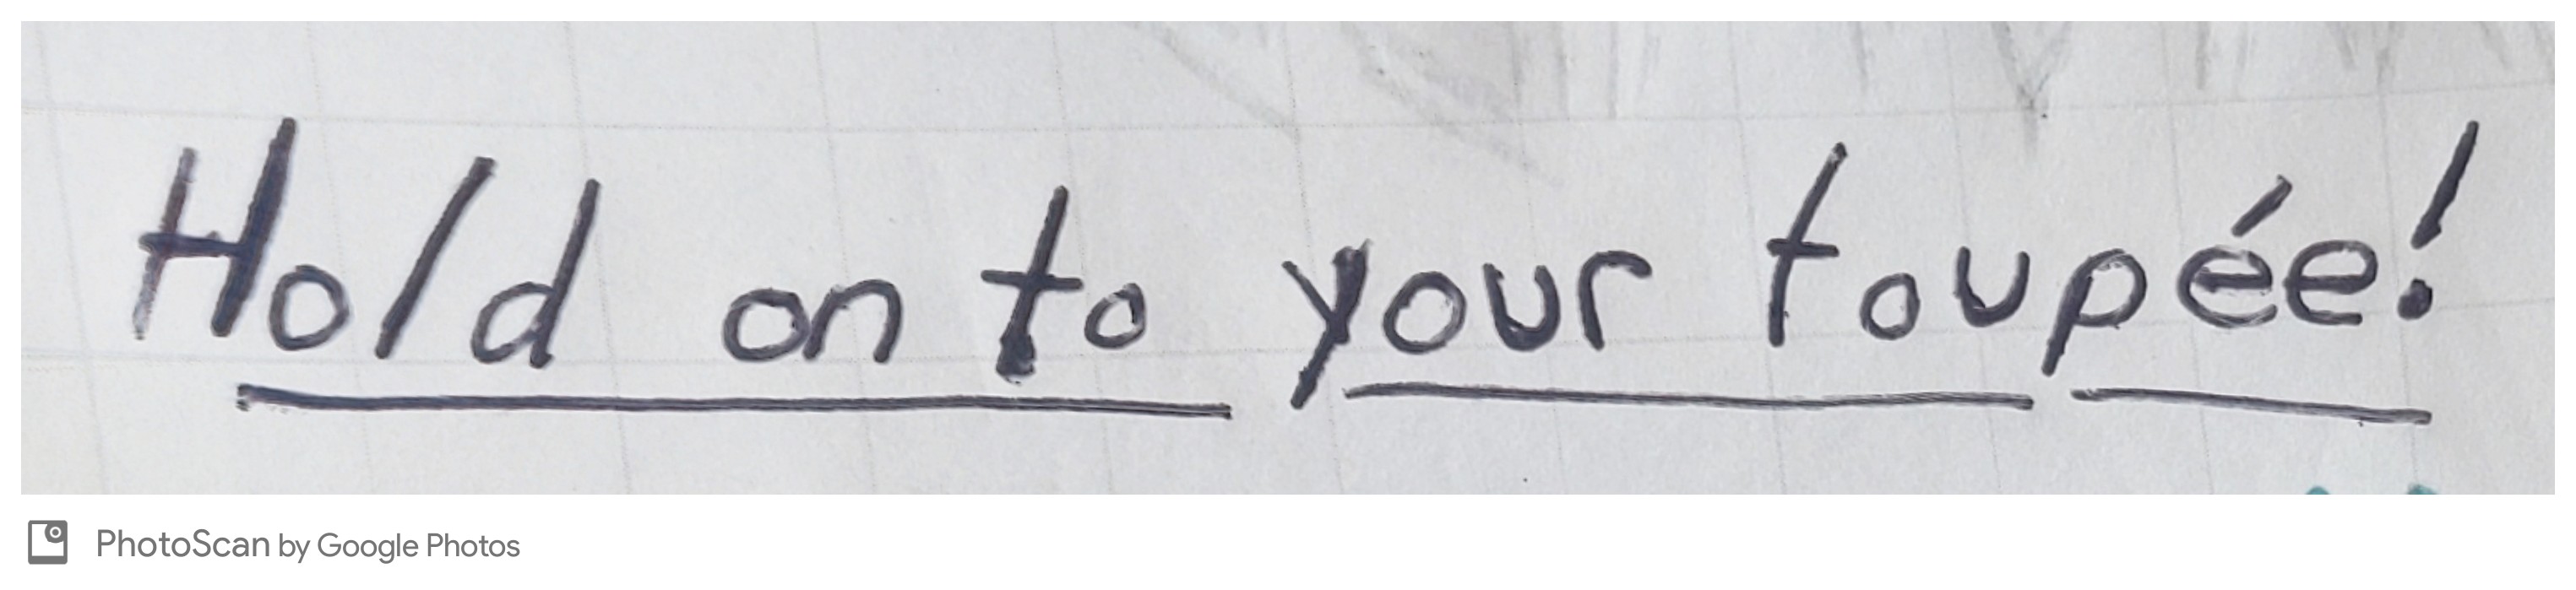 Hold on to your toupée!
PhotoScan by Google Photos